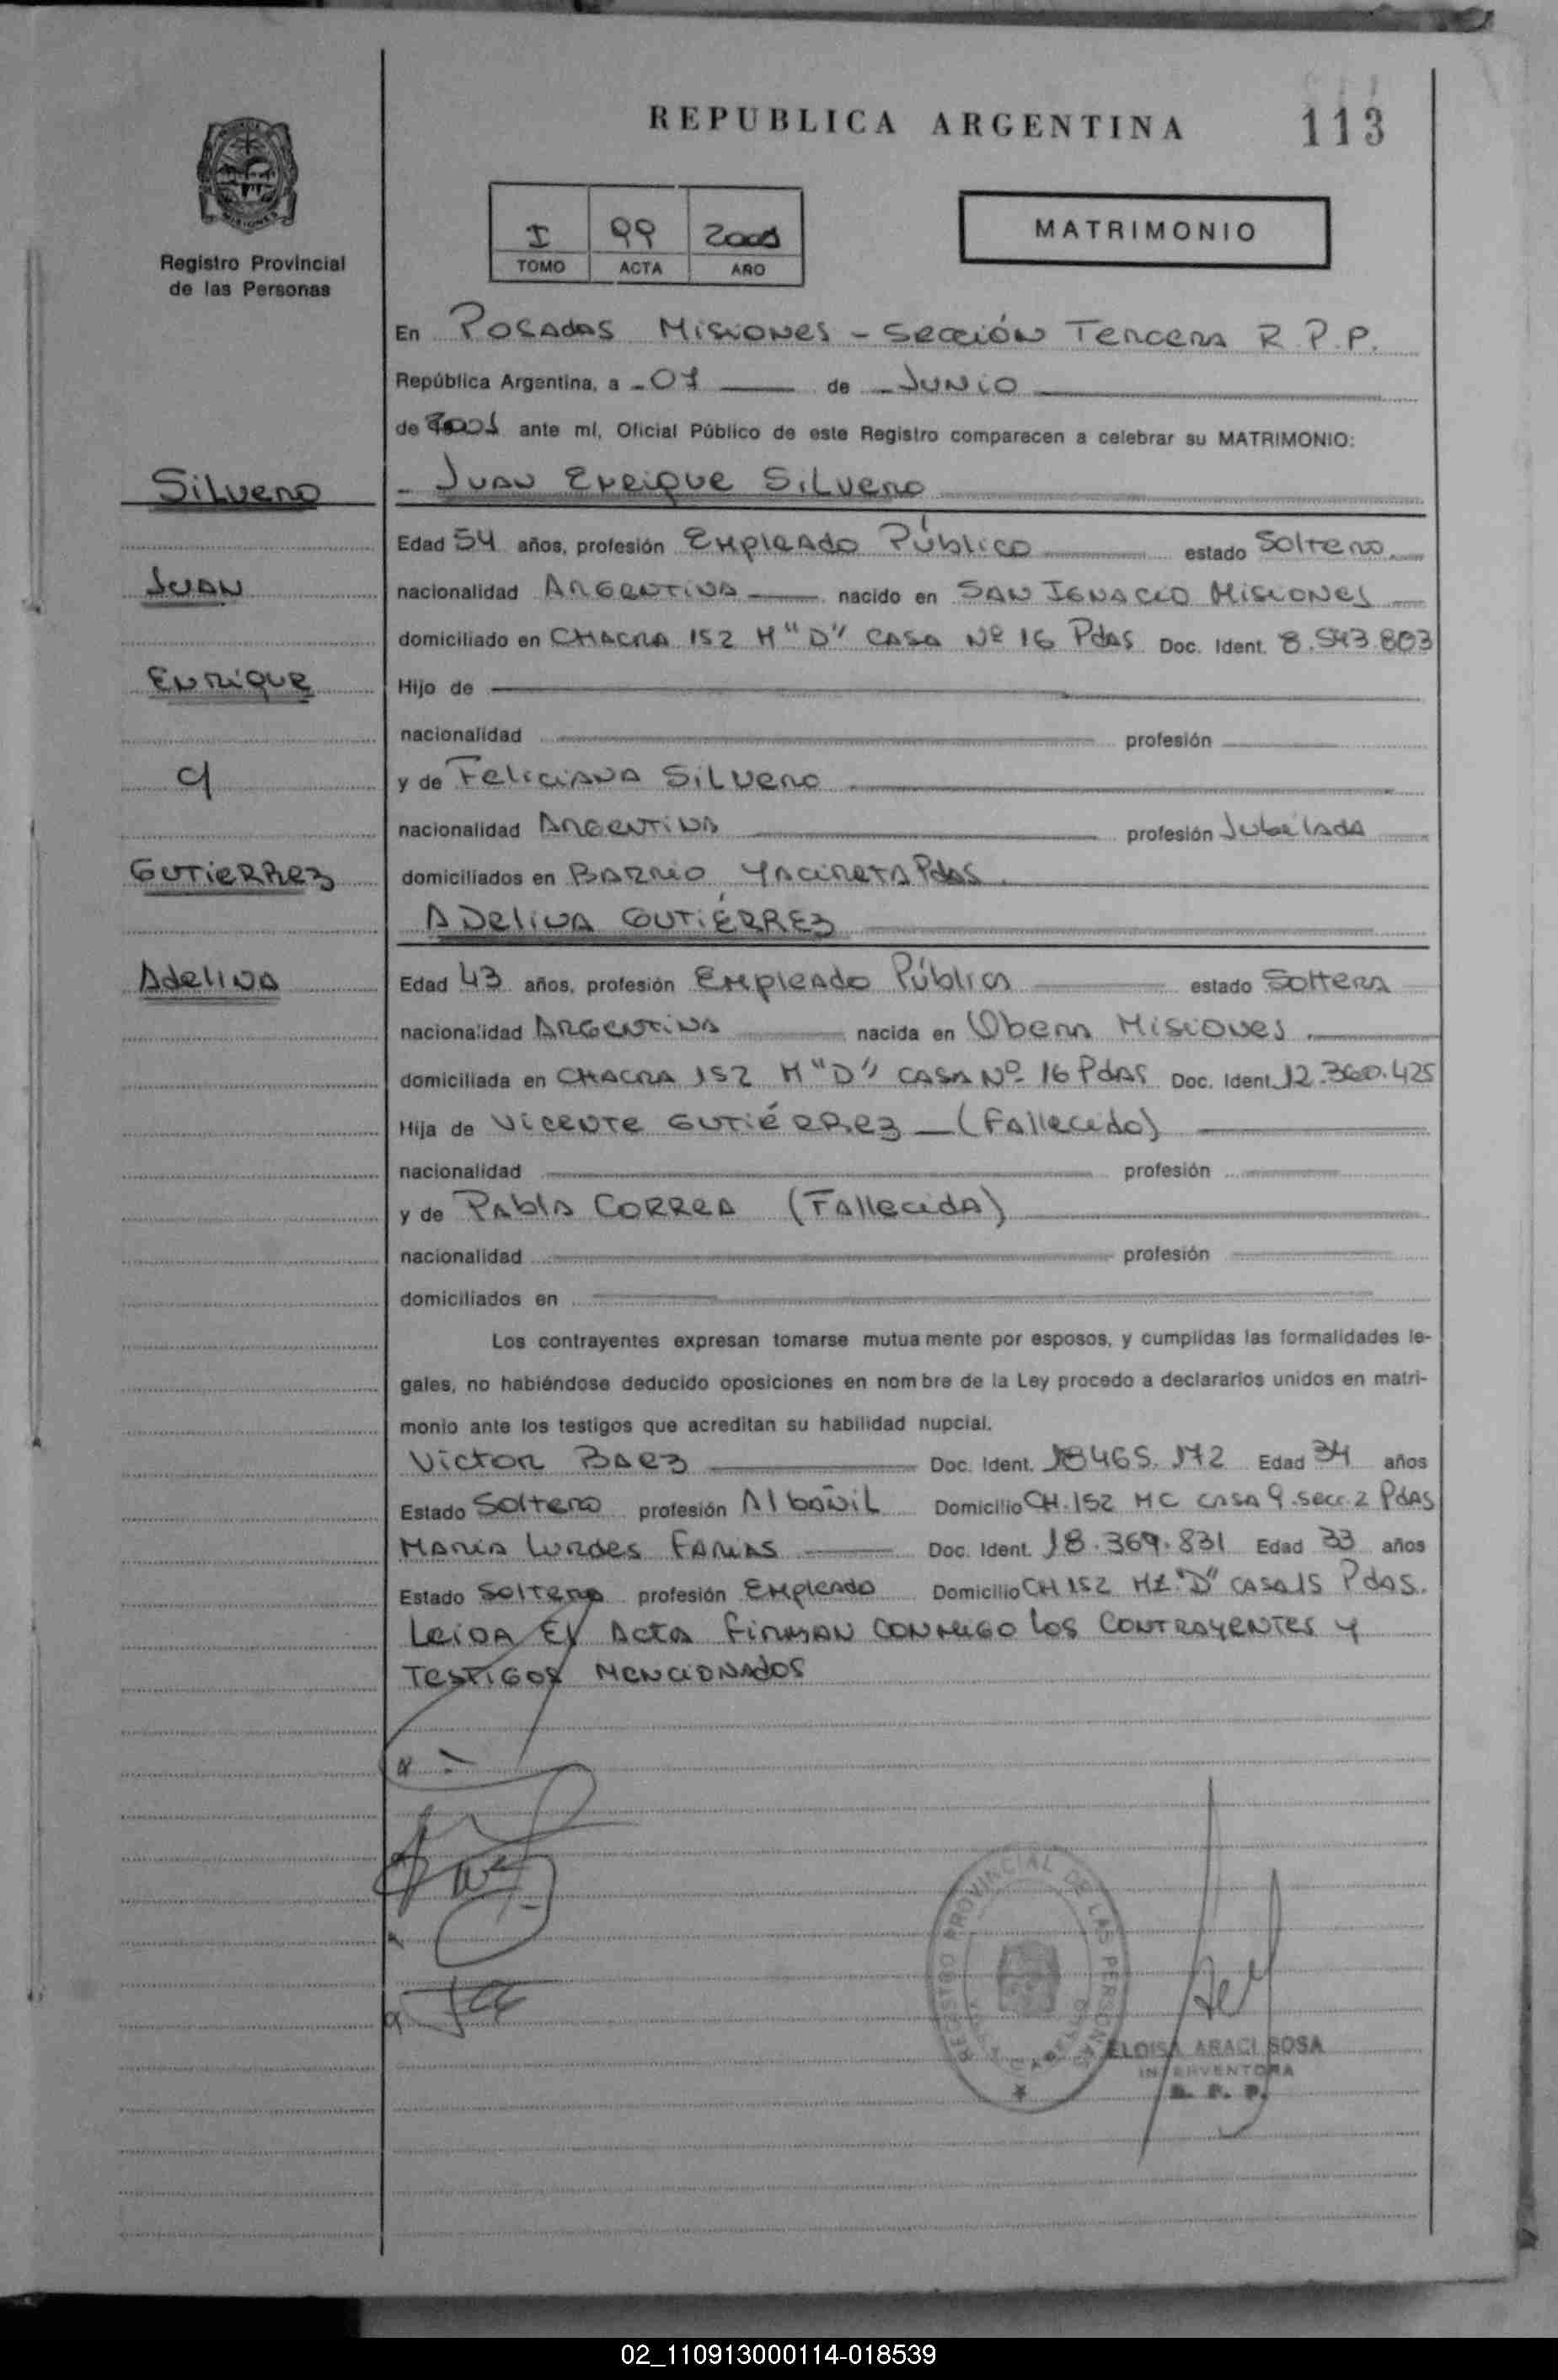 REPUBLICA ARGENTINA
113
Registro Provincial
de las Personas
I 99
TOMO ACTA AÑO
MATRIMONIO
En Posadas Misiones - Sección Tercera R.P.P.
República Argentina, a - 07 de - Junio
de 2001 ante mí, Oficial Público de este Registro comparecen a celebrar su MATRIMONIO:
Silvero
- Juan Enrique Silvero
Edad 54 años, profesión Empleado Público estado Soltero
Juan
nacionalidad Argentina nacido en San Ignacio Misiones
domiciliado en Chacra 152 M"D" Casa Nº 16 Pdas Doc. Ident. 8.543.803
Enrique
Hijo de
nacionalidad profesión
y
y de Feliciana Silvero
nacionalidad Argentina profesión Jubilada
Gutierrez
domiciliados en Barrio Yacireta Pdas
Adelina Gutiérrez
Adelina
Edad 43 años, profesión Empleado Público estado Soltera
nacionalidad Argentina nacida en Obera Misiones
domiciliada en Chacra 152 M"D" Casa Nº 16 Pdas Doc. Ident. 12.360.425
Hija de Vicente Gutiérrez - (Fallecido)
nacionalidad profesión
y de Pabla Correa (Fallecida)
nacionalidad profesión
domiciliados en
Los contrayentes expresan tomarse mutua mente por esposos, y cumplidas las formalidades le-
gales, no habiéndose deducido oposiciones en nom bre de la Ley procedo a declararlos unidos en matri-
monio ante los testigos que acreditan su habilidad nupcial.
Victor Baez Doc. Ident. 18465.172 Edad 34 años
Estado Soltero profesión Albañil Domicilio CH.152 MC Casa 9.secc.2 Pdas
Maria Lurdes Farias Doc. Ident. 18.369.831 Edad 33 años
Estado Soltera profesión Empleado Domicilio CH 152 Mz."D" Casa 15 Pdas.
Leida El Acta firman conmigo los contrayentes y
testigos mencionados
REGISTRO PROVINCIAL DE LAS PERSONAS
ELOISA ARACI SOSA
INTERVENTORA
R. P. P.
02_110913000114-018539